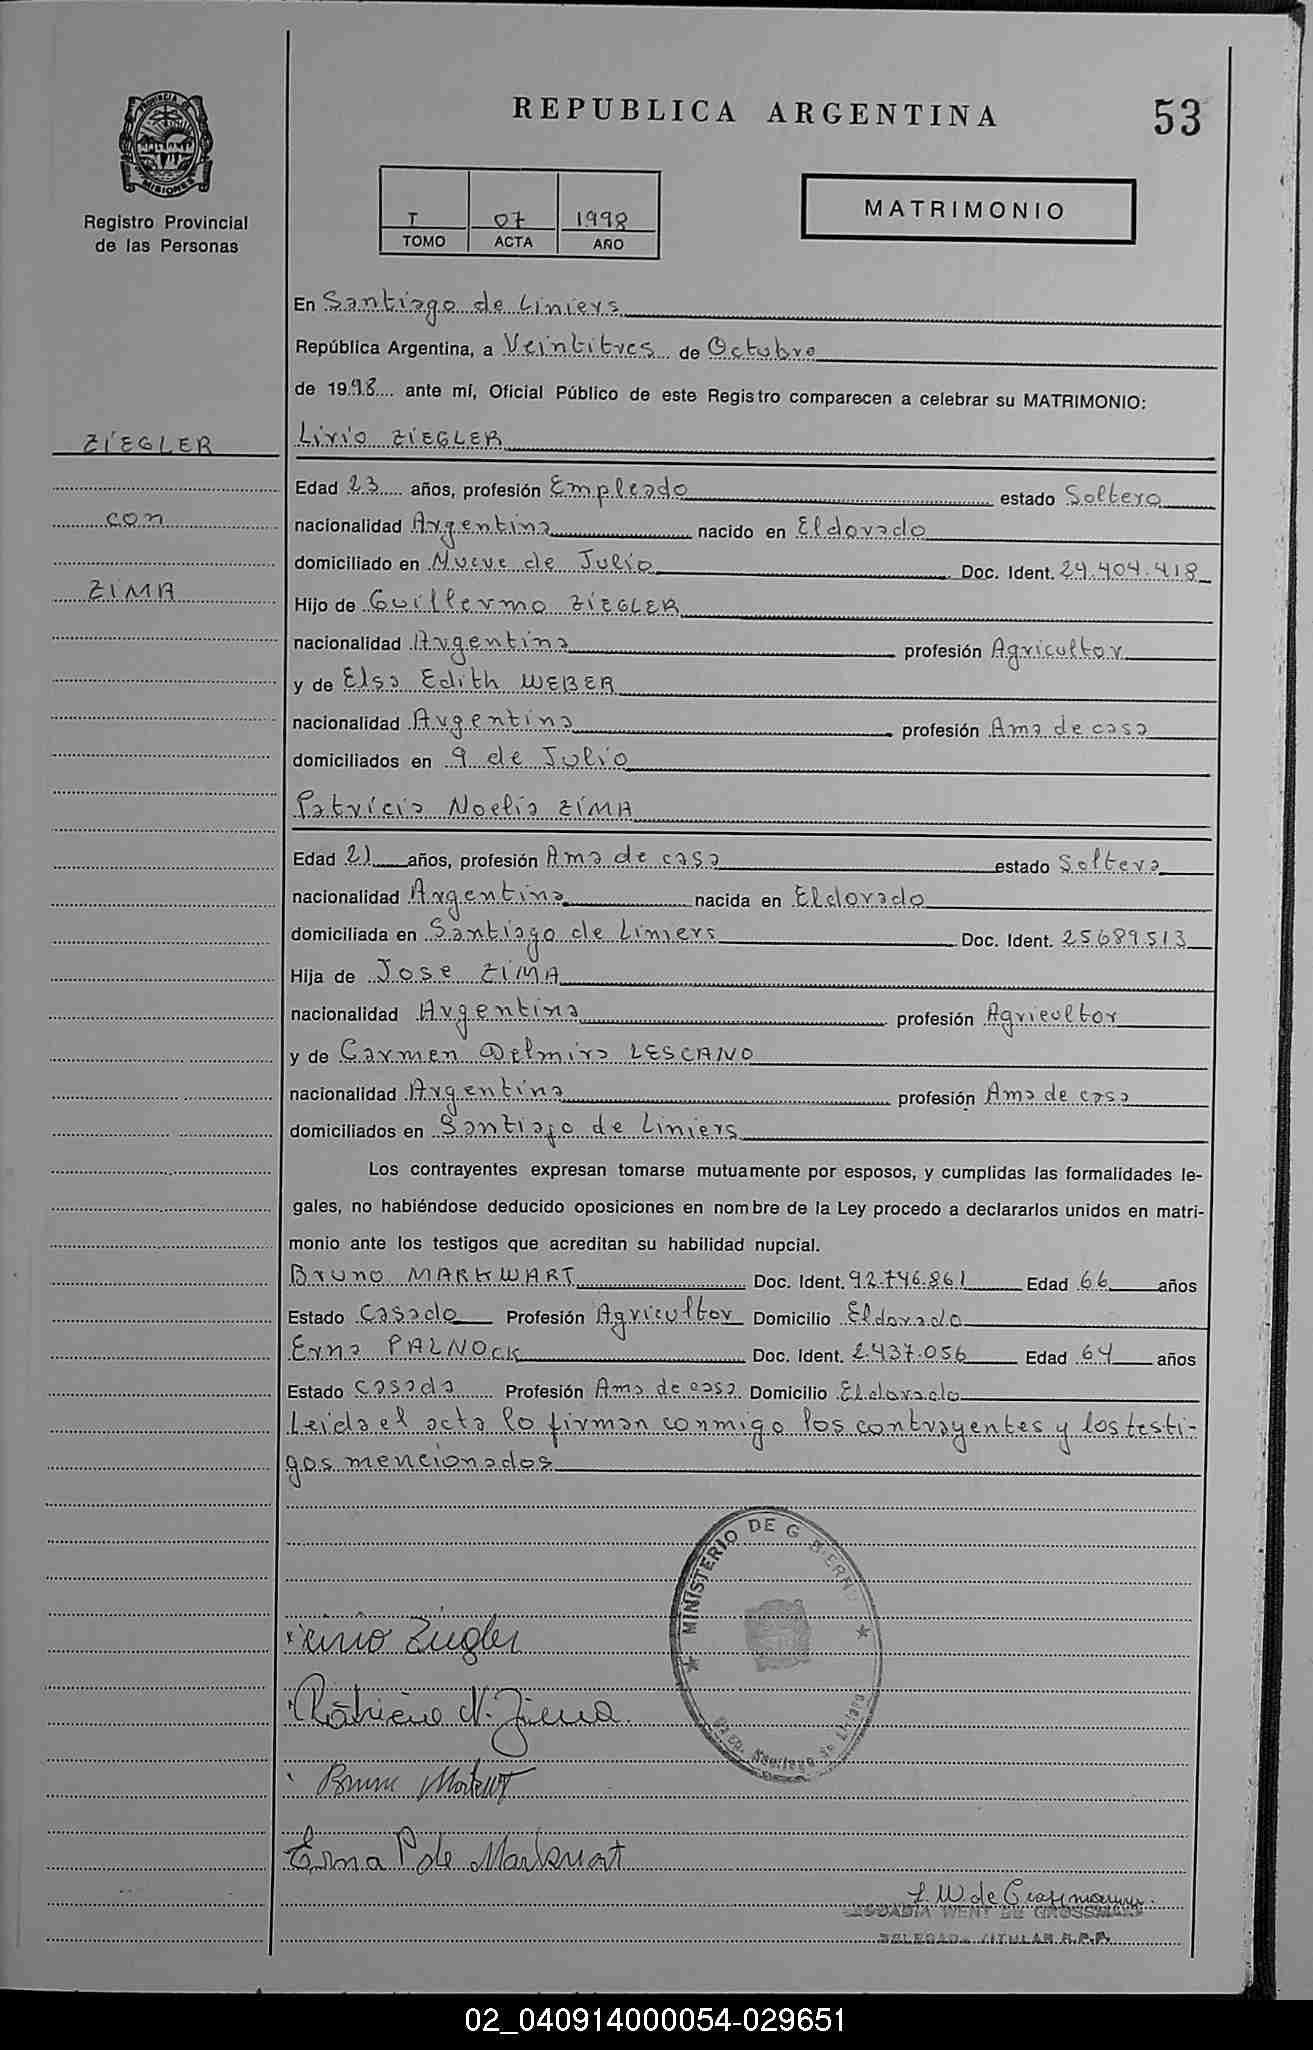 REPUBLICA ARGENTINA
53
PROVINCIA DE MISIONES
Registro Provincial
de las Personas
I 07 1998
TOMO ACTA AÑO
MATRIMONIO
En Santiago de Liniers
República Argentina, a Veintitres de Octubre
de 1998 ante mí, Oficial Público de este Registro comparecen a celebrar su MATRIMONIO:
ZIEGLER
con
ZIMA
Lirio ZIEGLER
Edad 23 años, profesión Empleado estado Soltero
nacionalidad Argentina nacido en Eldorado
domiciliado en Nueve de Julio Doc. Ident. 24.404.418
Hijo de Guillermo ZIEGLER
nacionalidad Argentina profesión Agricultor
y de Elsa Edith WEBER
nacionalidad Argentina profesión Ama de casa
domiciliados en 9 de Julio
Patricia Noelia ZIMA
Edad 21 años, profesión Ama de casa estado Soltera
nacionalidad Argentina nacida en Eldorado
domiciliada en Santiago de Liniers Doc. Ident. 25689.513
Hija de Jose ZIMA
nacionalidad Argentina profesión Agricultor
y de Carmen Delmira LESCANO
nacionalidad Argentina profesión Ama de casa
domiciliados en Santiago de Liniers
Los contrayentes expresan tomarse mutuamente por esposos, y cumplidas las formalidades le-
gales, no habiéndose deducido oposiciones en nombre de la Ley procedo a declararlos unidos en matri-
monio ante los testigos que acreditan su habilidad nupcial.
Bruno MARKWART Doc. Ident. 92.746.861 Edad 66 años
Estado Casado Profesión Agricultor Domicilio Eldorado
Erna PALNOCK Doc. Ident. 2.437.056 Edad 64 años
Estado Casada Profesión Ama de casa Domicilio Eldorado
Leida el acta lo firman conmigo los contrayentes y los testi-
gos mencionados
MINISTERIO DE GOBIERNO
Santiago de Liniers
Lirio Ziegler
Patricia N. Zima
Bruno Markwart
Erna P de Markwart
L. W de Grossmann
WENT DE GROSSMANN
DELEGADA TITULAR R.P.P.
02_040914000054-029651